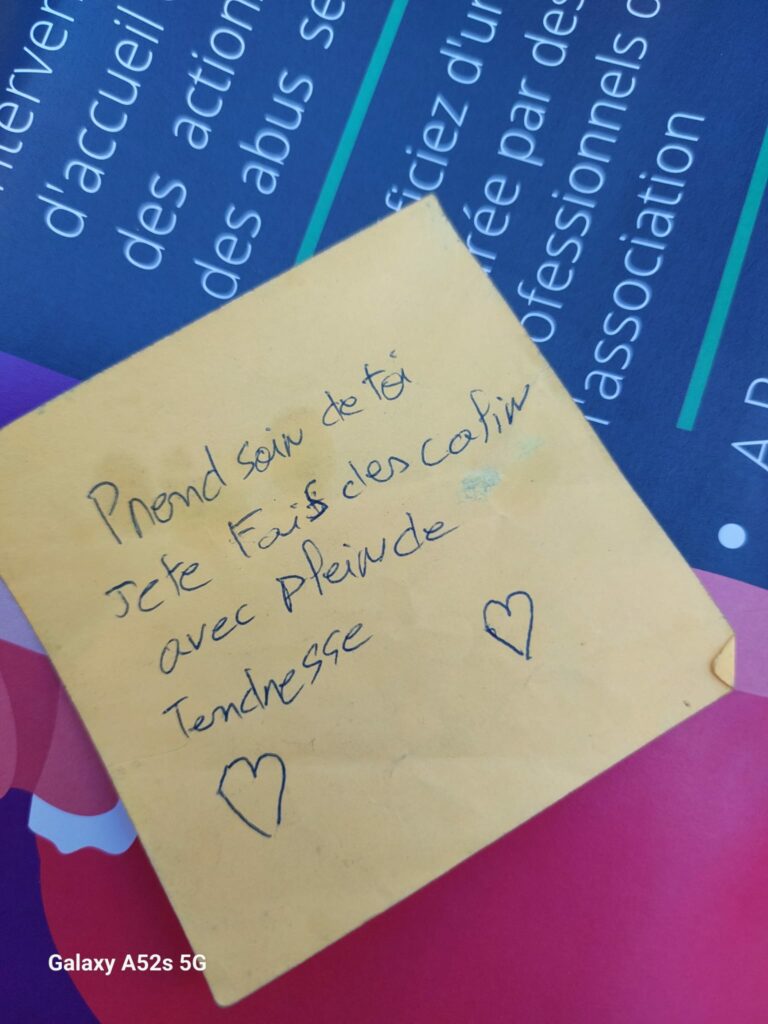 nterven
d'accueil
des action
des abus se
ficiez d'un
rée par des
ofessionnels o
l'association
Prend soin de toi
Je te Fais des calin
avec plein de
Tendresse
Galaxy A52s 5G